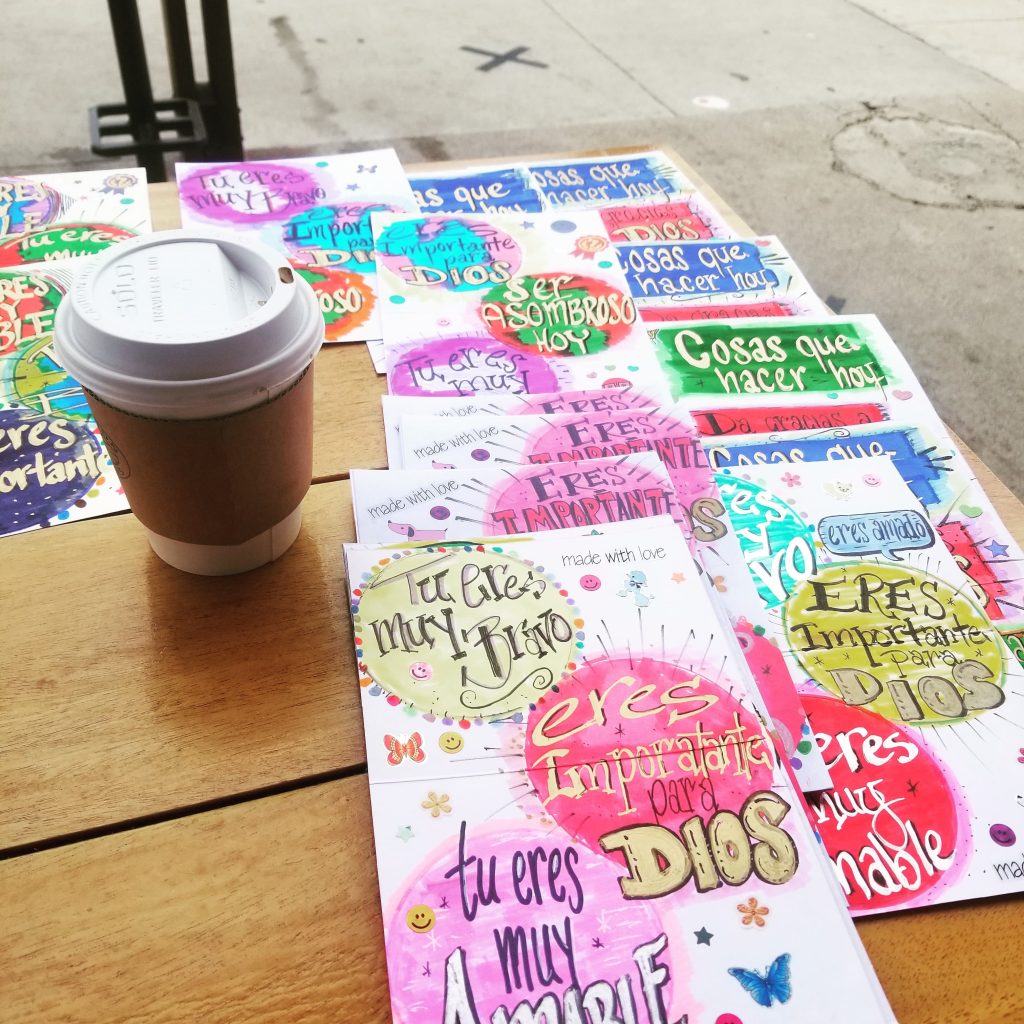 Tu eres
muy Bravo
Cosas que
Cosas que
hacer hoy
Tu eres
muy
eres
Importante
para
Dios
Importante
para
Dios
gracias a
Dios
Cosas que
hacer hoy
Ser
Asombroso
Hoy
SOLO
TRAVELER
Tu eres
muy
Cosas que
hacer hoy
Da gracias a
Cosas que
eres
made with love
Eres
made with love
Eres
Importante
made with love
Eres
Importante
eres amado
Eres
Importante
para
Dios
Tu eres
muy Bravo
made with love
eres
Imporatante
para
Dios
eres
muy
tu eres
muy
Amable